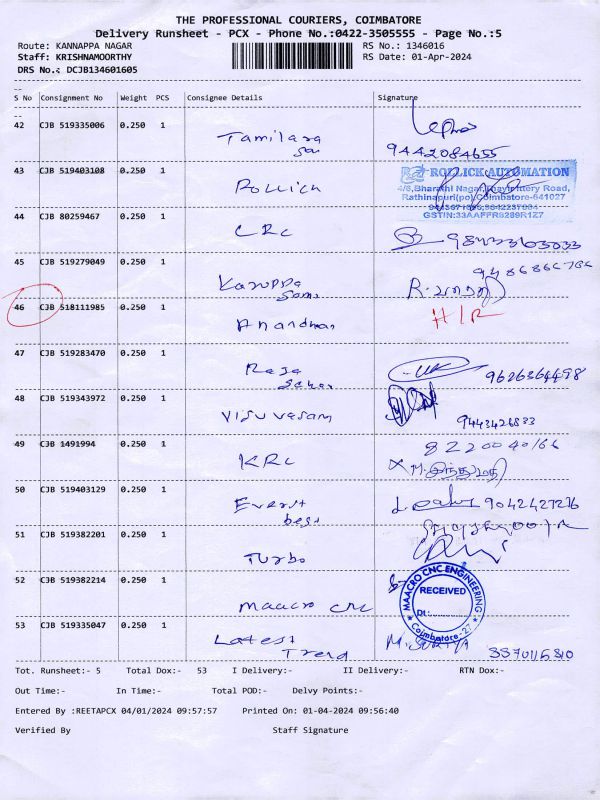 THE PROFESSIONAL COURIERS, COIMBATORE
Delivery Runsheet - PCX - Phone No.:0422-3505555 - Page No.:5
Route: KANNAPPA NAGAR RS No.: 1346016
Staff: KRISHNAMOORTHY RS Date: 01-Apr-2024
DRS No.: DCJB134601605
S No Consignment No Weight PCS Consignee Details Signature
42 CJB 519335006 0.250 1 Tamilarasan
9442084655
43 CJB 519403108 0.250 1 Rollick
ROLLICK AUTOMATION
4/6,Bharathi Nagar, Road,
Rathinapuri(po),Coimbatore-641027
GSTIN:33AAFFR8289R1Z7
44 CJB 80259467 0.250 1 CRC
45 CJB 519279049 0.250 1 Karuppa Sami
46 CJB 518111985 0.250 1 Anandhan H/R
47 CJB 519283470 0.250 1 Raja
9626364498
48 CJB 519343972 0.250 1 Visuvasam
49 CJB 1491994 0.250 1 KRC
50 CJB 519403129 0.250 1 Everst best 9042427276
51 CJB 519382201 0.250 1 Turbo
52 CJB 519382214 0.250 1 Maacro CNC
MAACRO CNC ENGINEERING
RECEIVED
Dt:
Coimbatore-27
53 CJB 519335047 0.250 1 Latest Trend
Tot. Runsheet:- 5 Total Dox:- 53 I Delivery:- II Delivery:- RTN Dox:-
Out Time:- In Time:- Total POD:- Delvy Points:-
Entered By :REETAPCX 04/01/2024 09:57:57 Printed On: 01-04-2024 09:56:40
Verified By Staff Signature